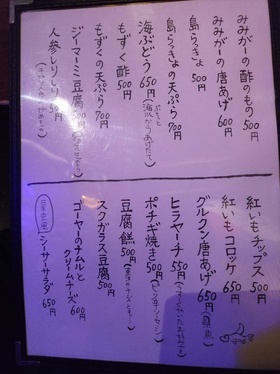 みみがーの酢のもの 500円
みみがーの唐あげ 600円
島らっきょ 500円
島らっきょの天ぷら 700円
海ぶどう 650円
もずく酢 500円
もずくの天ぷら 700円
ジーマーミ豆腐 500円
人参しりしり 500円
紅いもチップス 500円
紅いもコロッケ 650円
グルクン唐あげ 650円(県魚)
ヒラヤーチ 550円
ポチギ焼き 500円
豆腐餻 500円
スクガラス豆腐 500円
ゴーヤーのナムルとクリームチーズ 600円
シーサーサラダ 650円